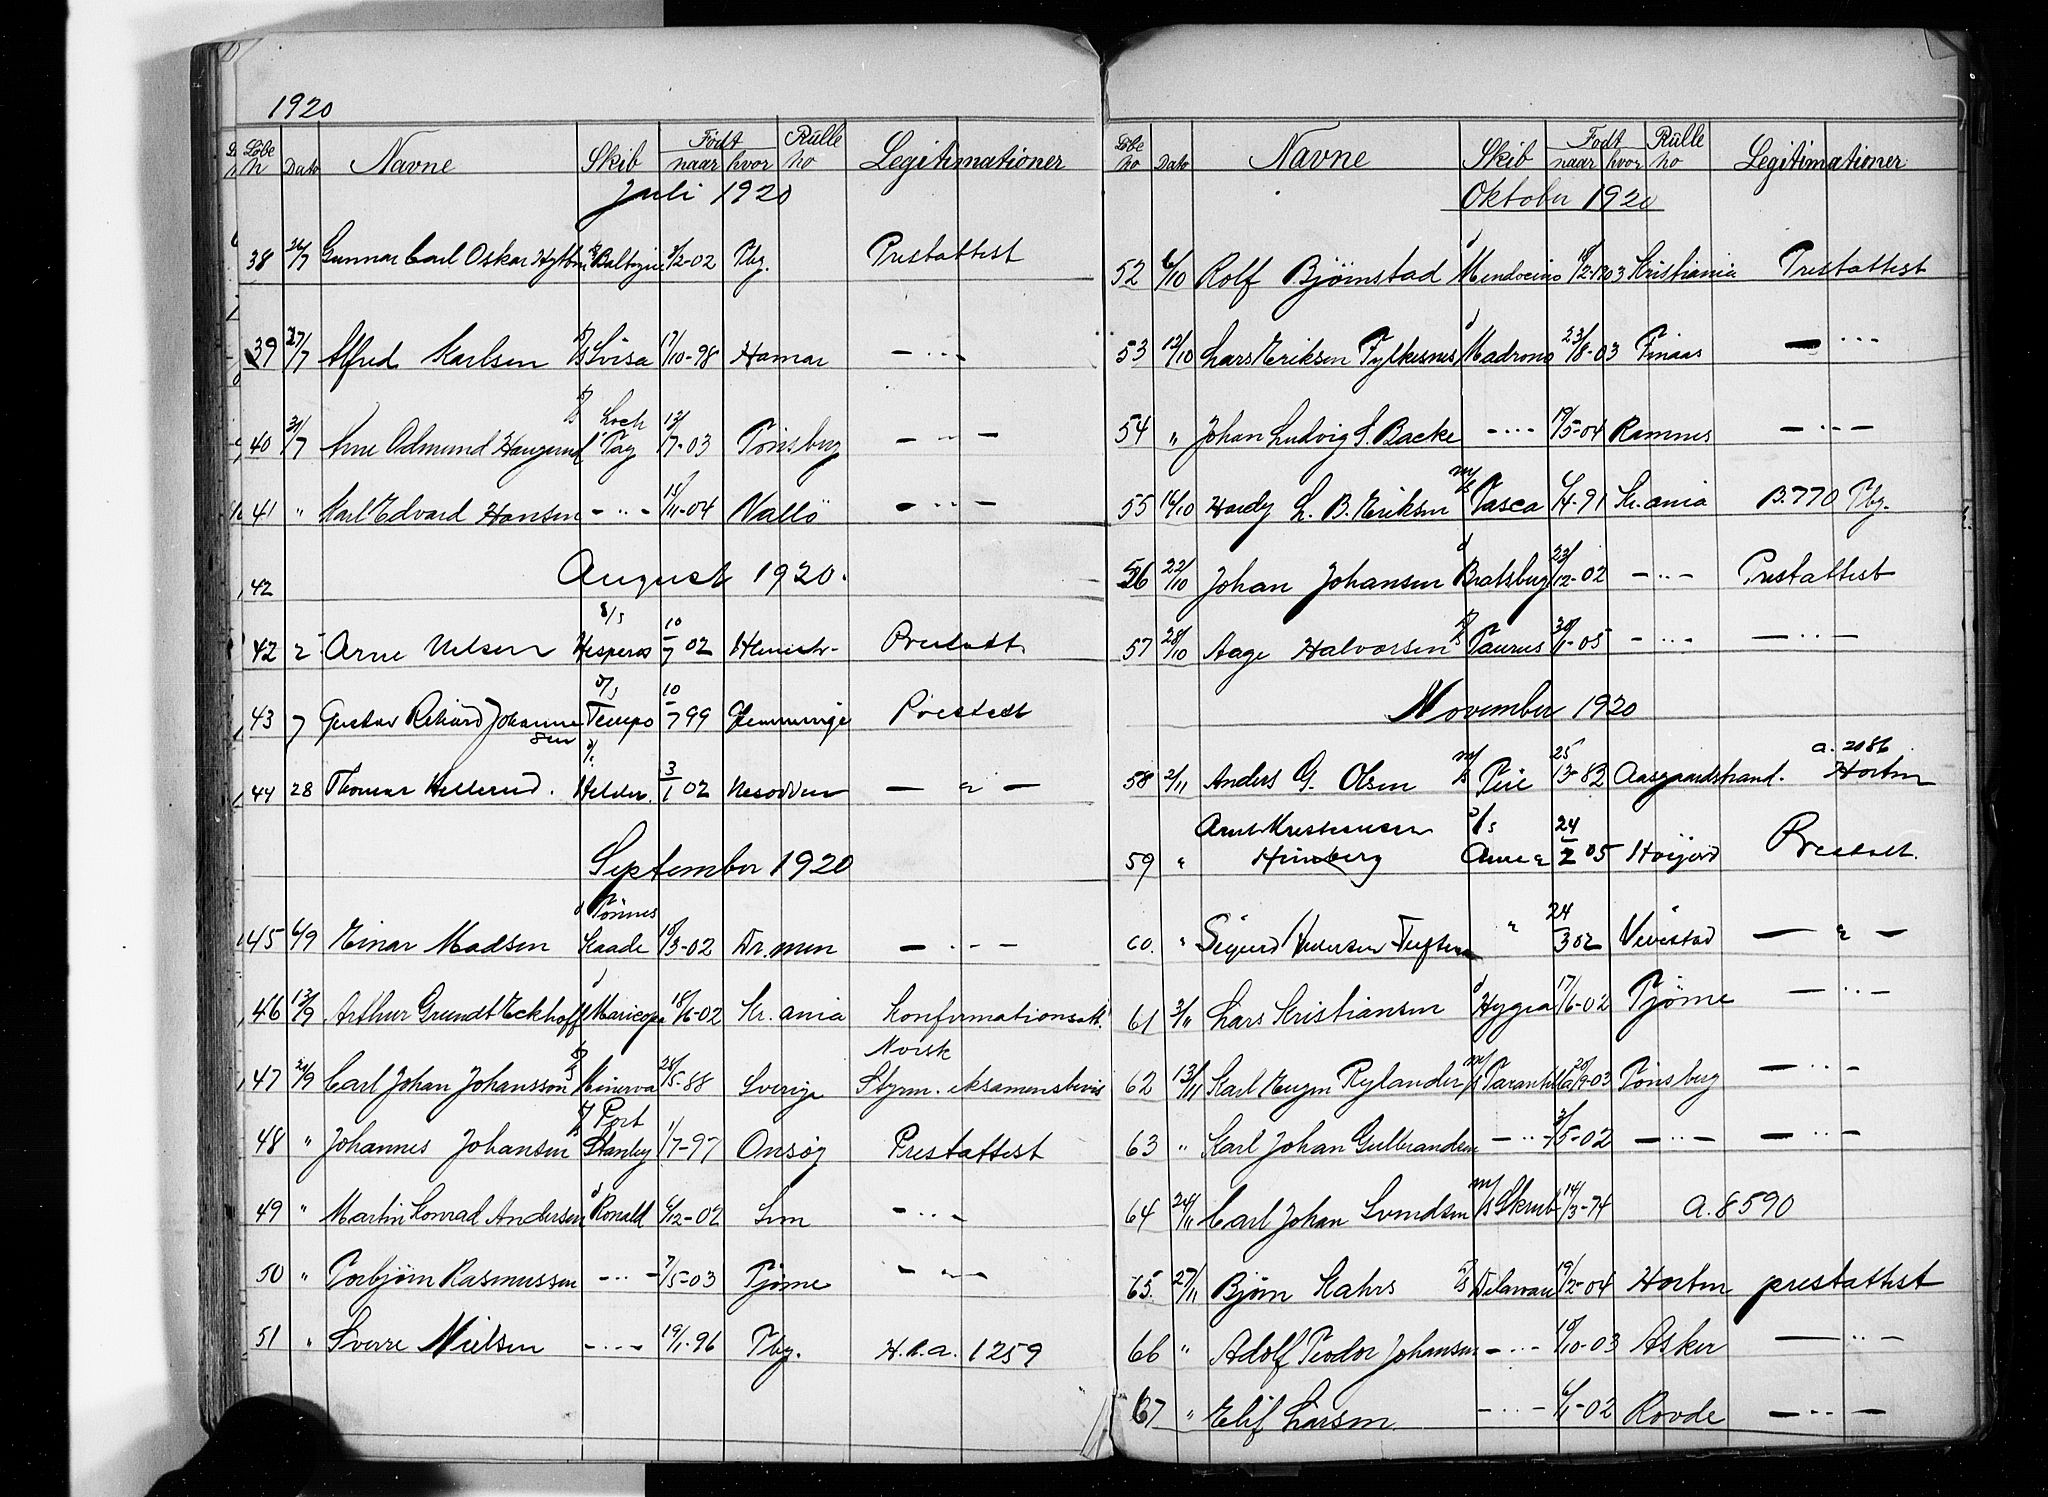 1920
Løbe n Dato Navne Skib Født naar hvor Rülle no Legitimationer
Juli 1920
38 26/7 Gunnar Carl Oskar 2/2-02 Tbg. Prestattest
39 27/7 Alfred Karlsen S/S Svisa 17/10-98 Hamar — ·· —
40 31/7 Arne Odmund Haugerud S/S Loch Tay 13/7-03 Tönsberg — ·· —
41 " Karl Edvard Hansen — ·· — 15/11-04 Vallö — ·· —
42 August 1920.
42 2 Arne Nelsen S/S Hesperos 10/7 02 Prestatt
43 7 Gustav Rikard Johannesen S/S Tempo 10/7 99 Glemminge Prestatt
44 28 Thomas Hellerud. Helder. 3/1 02 Nesodden — " —
September 1920
45 6/9 Einar Madsen d Tönnes Kaade 10/3-02 Dr.men — ·· —
46 13/9 Arthur Grundt Eckhoff d Maricopa 18/6-02 Kr.ania Konfirmationsatt.
47 21/9 Carl Johan Johansson S/S Minerva 26/5-88 Sverige Norsk Styrm. eksamensbevis
48 " Johannes Johansen S/S Port Stanley 1/7-97 Onsøy Prestattest
49 " Martin Konrad Andersen d Ronald 6/12-02 Sem — ·· —
50 " Torbjørn Rasmussen — ·· — 7/5-03 Tjøme — ·· —
51 " Sverre Nielsen — ·· — 19/1-96 Tbg. H.a.a. 1259
Løbe no Dato Navne Skib Født naar hvor Rülle no Legitimationer
Oktober 1920
52 6/10 Rolf Bjørnstad d Mendocino 10/2-1903 Kristiania Prestattest
53 12/10 Lars Eriksen Fylkesnes d Madrono 23/8-03 Finaas — ·· —
54 " Johan Ludvig S. Backe — ·· — 19/5-04 Ramnes — ·· —
55 16/10 Hardy L. B. Eriksen m/S Tasca 6/4-91 Kr.ania B.770 Tbg.
56 22/10 Johan Johansen d Bratsberg 23/12-02 — ·· — Prestattest
57 28/10 Aage Halvorsen S/S Taurus 30/1-05 — ·· — — ·· —
November 1920
58 2/11 Anders G. Olsen m/S Teie 25/3-82 Aasgaardstrand. a. 2086 Horten
59 " Arnt Kristensen Himberg S/S Anna 24/2 05 Høijord Prestatt.
60. " Sigurd Pedersen Tufteen " 24/3 02 Vivestad — " —
61 3/11 Lars Kristiansen d Hygea 17/6-02 Tjöme — ·· —
62 13/11 Karl Eugen Rylander m/S Tarantella 20/9-03 Tönsberg — ·· —
63 " Karl Johan Gulbrandsen — ·· — 3/5-02 — ·· — — ·· —
64 24/11 Carl Johan Svendsen m/S Skrub 14/3-74 a. 8590
65. 27/11 Bjørn Kahrs S/S Delaware 19/2-04 Horten prestattest
66 " Adolf Teodor Johansen — ·· — 10/10-03 Asker — ·· —
67 " Elif Larsen. — ·· — 6/1-02 Rovde — ·· —